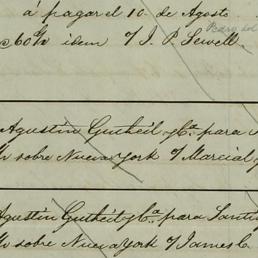 á pagar el 10 de Agosto
@ 60 d/v idem f/ J. P. Sewell
Agustin Guiteil y Ca. para
sobre Nueva York f/ Marcial
Agustin Guiteil y Ca. para Santi
sobre Nueva York f/ James C